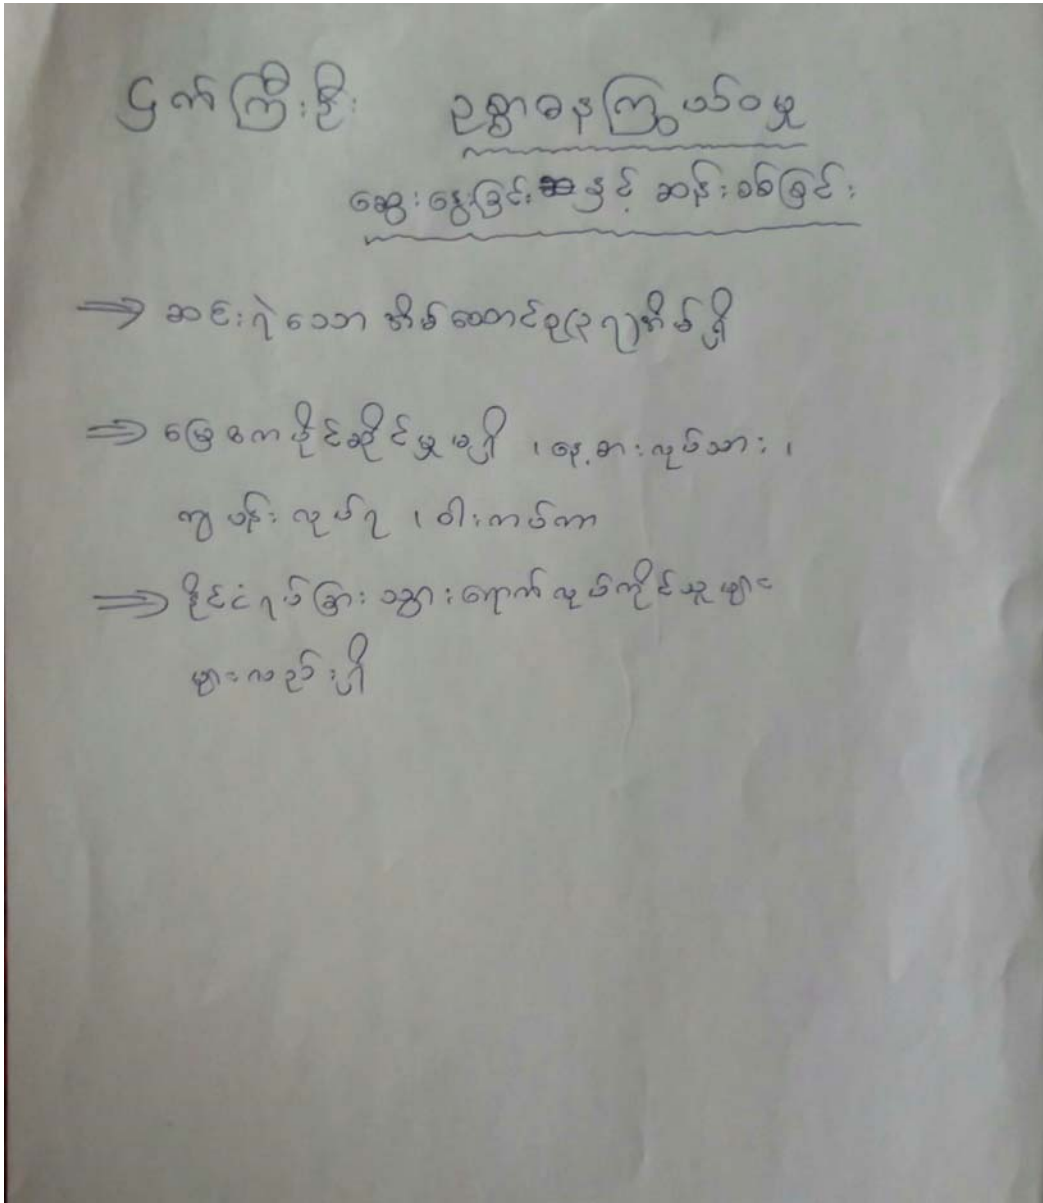 ငှက်ကြီးစိုး ဥစ္စာဓနကြွယ်ဝမှု
ဆွေးနွေးခြင်းနှင့် ဆန်းစစ်ခြင်း
⇒ ဆင်းရဲသော အိမ်ထောင်စု(၃၇)အိမ်ရှိ
⇒ မြေဧကပိုင်ဆိုင်မှုမရှိ ၊ နေ့စားလုပ်သား ၊
ကျပန်းလုပ်ရ ၊ ဝါးကပ်ကာ
⇒ နိုင်ငံရပ်ခြားသွားရောက်လုပ်ကိုင်သူများ
များလည်းရှိ